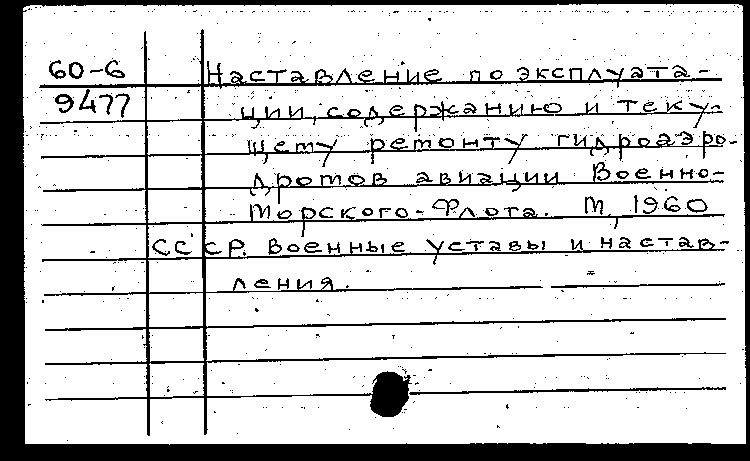 60-6 Наставление по эксплуата-
9477 ции, содержанию и теку-
щему ремонту гидроаэро-
дромов авиации Военно-
Морского-Флота. М, 1960
СССР. Военные уставы и настав-
ления.